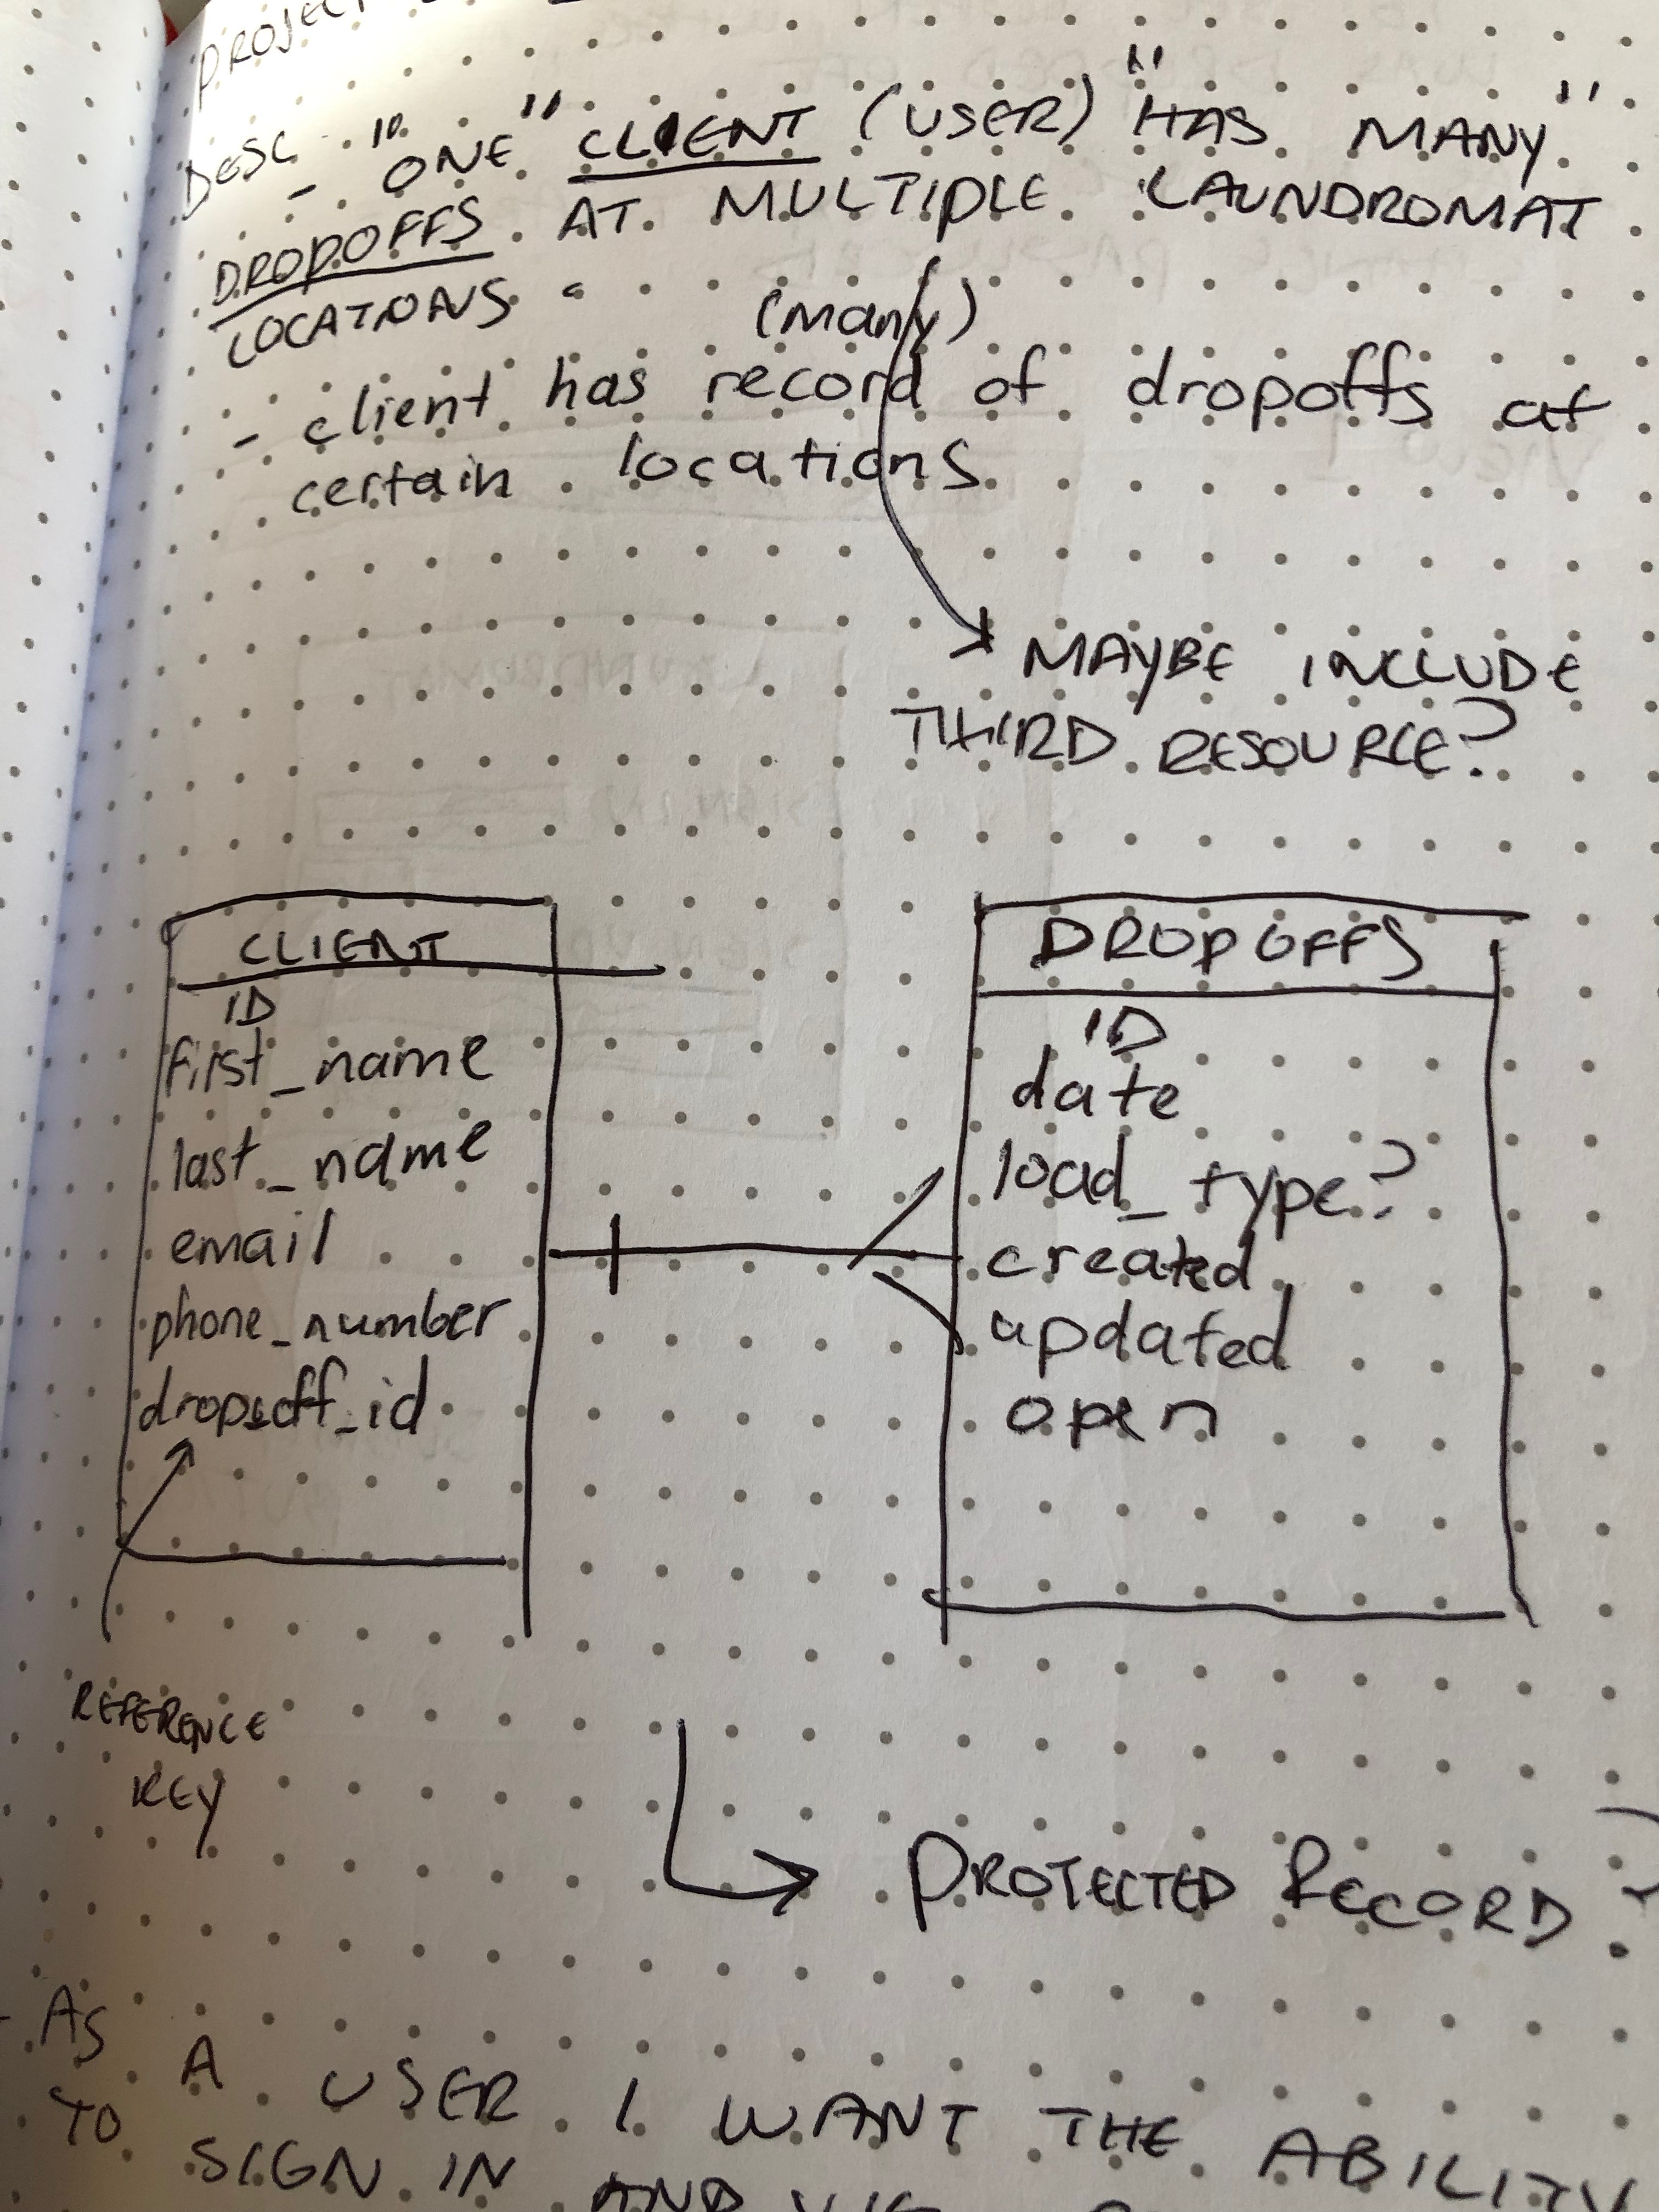 PROJECT
DESC - "ONE" CLIENT (USER) "HAS MANY"
DROPOFFS AT MULTIPLE LAUNDROMAT
LOCATIONS.
(many)
- client has record of dropoffs at
certain locations.
MAYBE INCLUDE
THIRD RESOURCE?
CLIENT
ID
first_name
last_name
email
phone_number
dropoff_id
REFERENCE
KEY
DROPOFFS
ID
date
load_type?
created
updated
open
PROTECTED RECORD?
- AS A USER I WANT THE ABILITY
TO SIGN IN AND